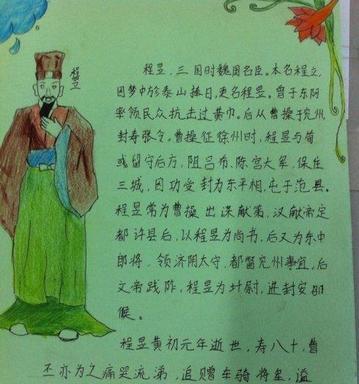 程昱
程昱,三国时魏国名臣。本名程立,
因梦中于泰山捧日,更名程昱。曾于东阿
率领民众抗击过黄巾。后从曹操于兖州
封寿张令。曹操征徐州时,程昱与荀
彧留守后方,阻吕布、陈宫大军,保住
三城,因功受封为东平相,屯于范县。
程昱常为曹操出谋献策。汉献帝定
都许县后,以程昱为尚书,后又为东中
郎将,领济阴太守,都督兖州事宜,后
文帝践阼,程昱为卫尉,进封安乡
候。
程昱黄初元年逝世,寿八十,曹
丕亦为之痛哭流涕,追赠车骑将军,谥